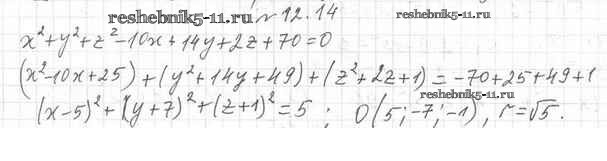 www.reshebnik5-11.ru № 12.14 www.reshebnik5-11.ru
x²+y²+z²-10x+14y+2z+70=0
(x²-10x+25)+(y²+14y+49)+(z²+2z+1)=-70+25+49+1
www.reshebnik5-11.ru
(x-5)²+(y+7)²+(z+1)²=5; O(5;-7;-1), r=√5.